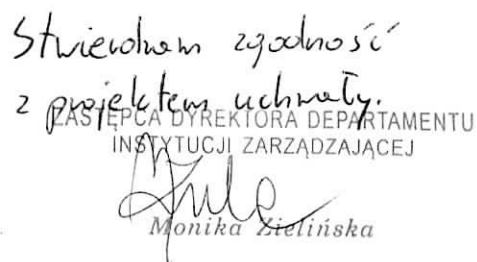 Stwierdzam zgodność
z projektem uchwały.
ZASTĘPCA DYREKTORA DEPARTAMENTU
INSTYTUCJI ZARZĄDZAJĄCEJ
Monika Zielińska